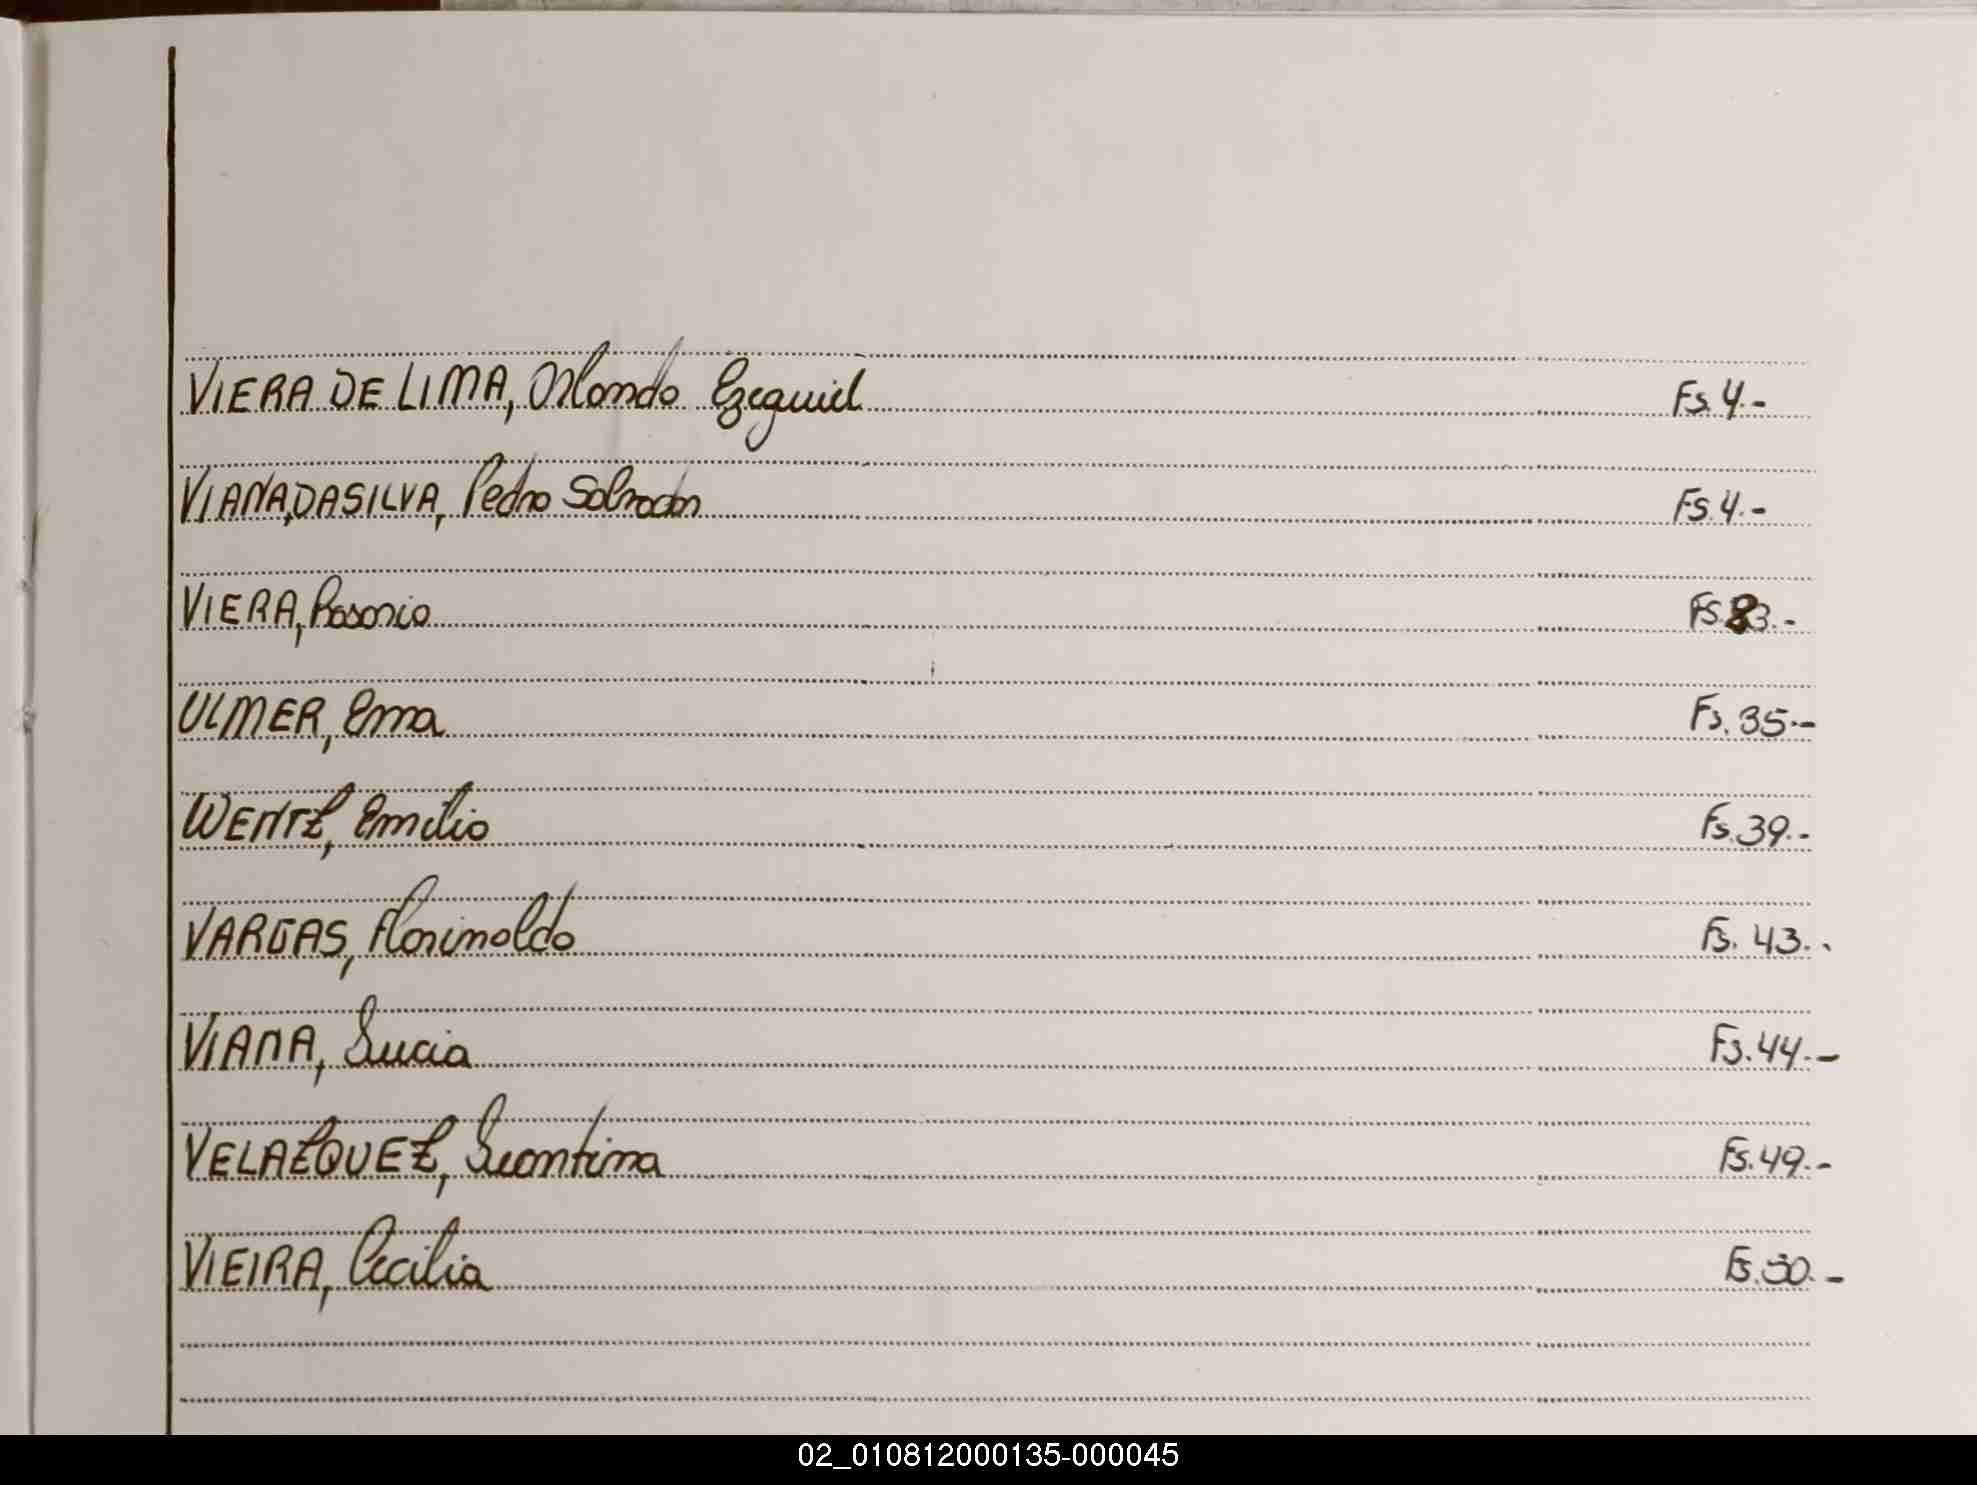 VIERA DE LIMA, Orlando Ezequiel Fs. 4.-
VIANA DA SILVA, Pedro Salvador Fs. 4.-
VIERA, Rosario Fs. 83.-
ULMER, Ema Fs. 35.-
WENTZ, Emilio Fs. 39.-
VARGAS, Florinaldo Fs. 43.-
VIANA, Lucia Fs. 44.-
VELAZQUEZ, Leontina Fs. 49.-
VIEIRA, Cecilia Fs. 50.-
02_010812000135-000045